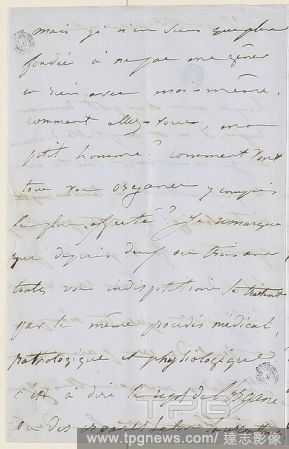 mais je n'en suis que plus
fondée à ne pas me gêner
en rien avec moi-même.
comment allez-vous, mon
petit homme? comment vont
tous vos organes y compris
le plus affecté? Je remarque
que depuis deux ou trois ans
toutes vos indispositions se traitent
par le même procédés médical,
pathologique et physiologique
c'est à dire le repos de l'organe
ou des organes
TPG
www.tpgnews.com / 達志影像